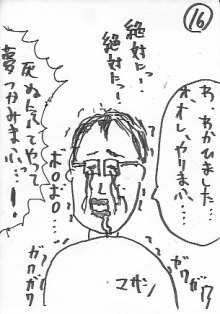 ⑯
わ、わかりました…
オ、オレ、やりまふ…
絶対にっ!
絶対にっ!
死ぬ気でやって
夢つかみまふっ…!
ボロボロ…
ガクガク
ガクガク
マサシ